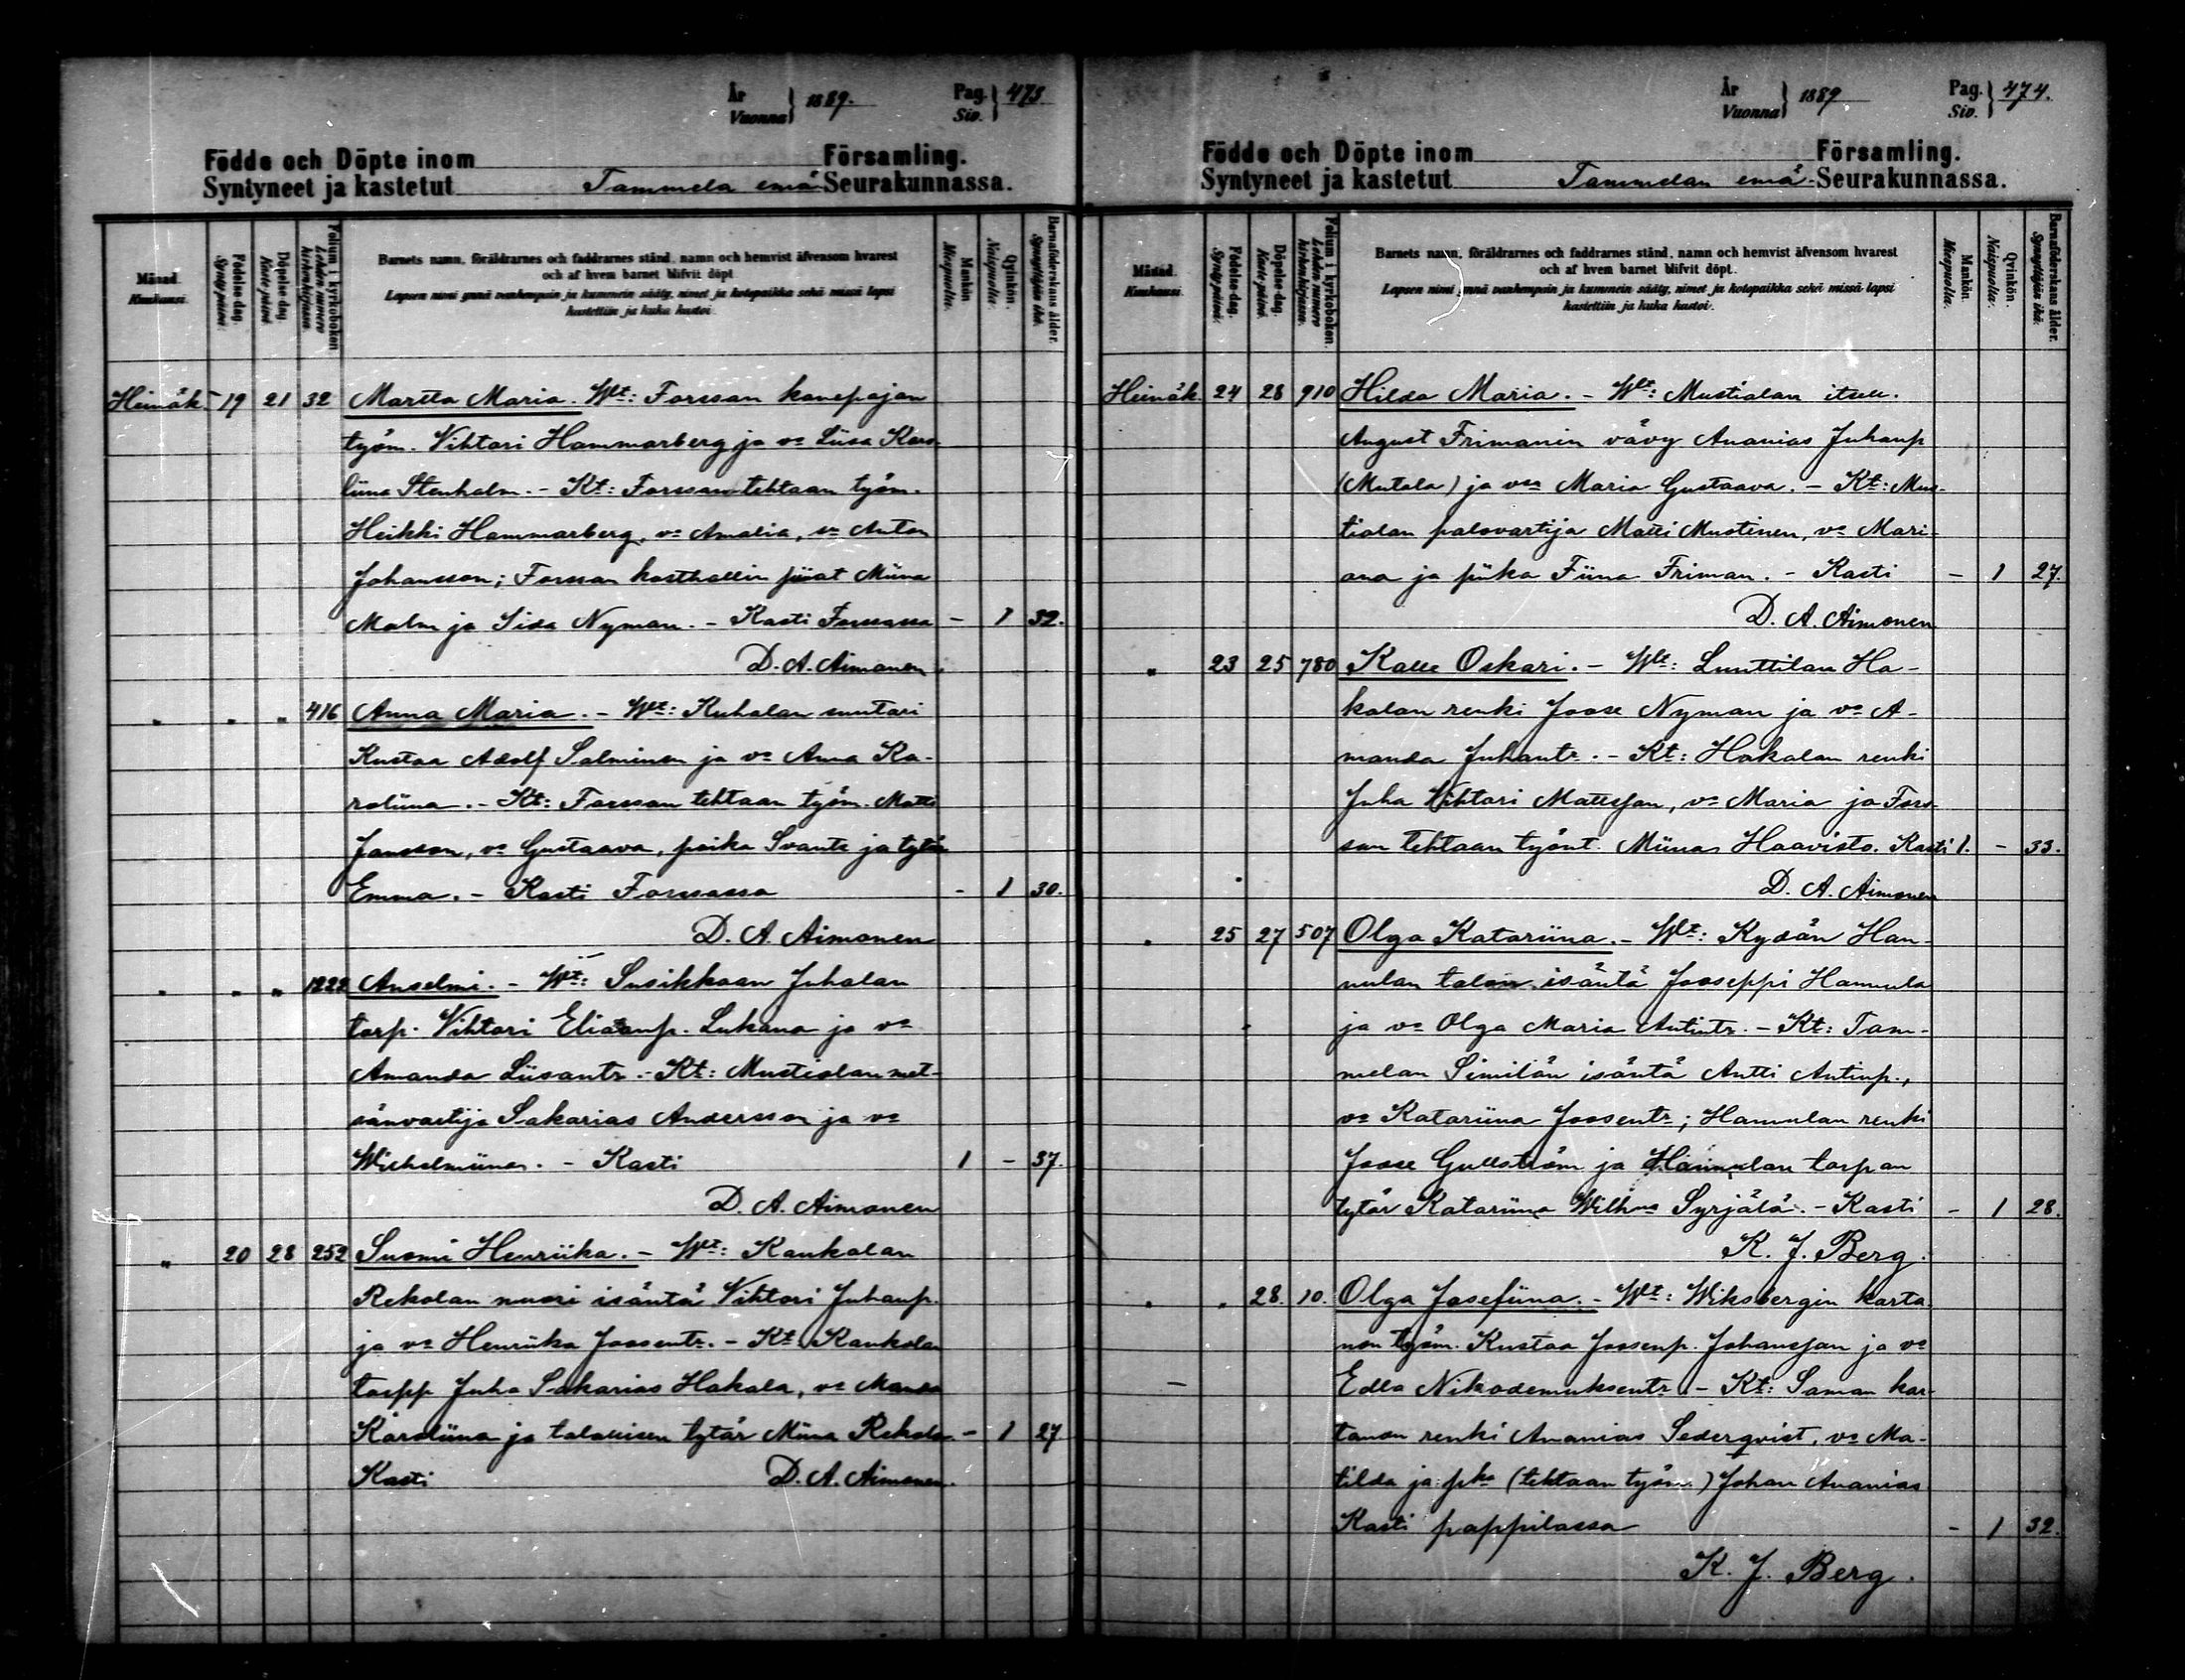 År
Vuonna } 1889.
Pag.
Siv. } 473
Födde och Döpte inom Församling.
Syntyneet ja kastetut Tammela emä Seurakunnassa.
Månad. Kuukausi.
Födelse dag. Synty päivä.
Döpelse dag. Kaste päivä
Folium i kyrkoboken Lehden numero kirkonkirjassa.
Barnets namn, föräldrarnes och faddrarnes stånd, namn och hemvist äfvensom hvarest
och af hvem barnet blifvit döpt.
Lapsen nimi ynnä vanhempain ja kummein sääty, nimet ja kotopaikka sekä missä lapsi
kastettiin ja kuka kastoi.
Mankön Miespuolia.
Qvinkön. Naispuolia.
Barnaföderskans ålder. Synnyttäjän ikä.
Heinäk. 19 21 32 Martta Maria. Wlt: Forssan konepajan
työm. Vihtori Hammarberg ja vo Liisa Karo-
liina Stenholm. - Kt: Forssan tehtaan työm.
Heikki Hammarberg, vo Amalia, vo Anton
Johansson; Forssan kosthallin piiat Miina
Malm ja Sida Nyman. - Kasti Forssassa - 1 32.
D. A. Aimonen.
" " " 416 Anna Maria. - Wlt: Kuhalan suutari
Kustaa Adolf Salminen ja vo Anna Ka-
roliina. - Kt: Forssan tehtaan työm. Matti
Jansson, vo Gustaava, poika Svante ja tytär
Emma. - Kasti Forssassa - 1 30.
D. A. Aimonen
" " " 1222 Anselmi. - Wlt: Susikkaan Juhalan
torp. Vihtori Eliaanp. Lukana ja vo
Amanda Liisantr. - Kt: Mustialan met-
sänvartija Sakarias Andersson ja vo
Wilhelmiina. - Kasti 1 - 37.
D. A. Aimonen
" 20 28 252 Suomi Henriika. - Wlt: Kaukolan
Rekolan nuori isäntä Vihtori Juhanp.
ja vo Henriika Joosentr. - Kt: Kaukolan
torpp Juha Sakarias Hakala, vo Manda
Karoliina ja talollisen tytär Miina Rekola. - 1 27
Kasti D. A. Aimonen.
År
Vuonna } 1889
Pag.
Siv. } 474.
Födde och Döpte inom Församling.
Syntyneet ja kastetut Tammelan emä- Seurakunnassa.
Månad. Kuukausi.
Födelse dag. Synty päivä.
Döpelse dag. Kaste päivä.
Folium i kyrkoboken. Lehden numero kirkonkirjassa.
Barnets namn, föräldrarnes och faddrarnes stånd, namn och hemvist äfvensom hvarest
och af hvem barnet blifvit döpt.
Lapsen nimi ynnä vanhempain ja kummein sääty, nimet ja kotopaikka sekä missä lapsi
kastettiin ja kuka kastoi.
Mankön. Miespuolia.
Qvinkön. Naispuolia.
Barnaföderskans ålder. Synnyttäjän ikä.
Heinäk. 24 28 910 Hilda Maria. - Wlt: Mustialan itsell.
August Frimanin vävy Ananias Juhanp
(Mutala) ja vo Maria Gustaava. - Kt: Mus-
tialan palovartija Matti Mustinen, vo Mari-
ana ja piika Fiina Friman. - Kasti - 1 27.
D. A. Aimonen
" 23 25 780 Kalle Oskari. - Wlt: Lunttilan Ha-
kalan renki Joose Nyman ja vo A-
manda Juhantr. - Kt: Hakalan renki
Juha Vihtori Mattsson, vo Maria ja Fors-
san tehtaan työnt. Miina Haavisto. Kasti 1. - 33.
D. A. Aimonen
" 25 27 507 Olga Katariina. - Wlt: Kydän Han-
nulan talon isäntä Jooseppi Hannula
ja vo Olga Maria Antintr. - Kt: Tam-
melan Similän isäntä Antti Antinp.,
vo Katariina Joosentr; Hannulan renki
Joose Gullström ja Hannulan torpan
tytär Katariina Wilhna Syrjälä. - Kasti - 1 28.
K. J. Berg.
" " 28. 10. Olga Josefiina. - Wlt: Wiksbergin karta-
non työm. Kustaa Joosenp. Johansson ja vo
Edla Nikodemuksentr. - Kt: Saman kar-
tanon renki Ananias Sederqvist, vo Ma-
tilda ja pka (tehtaan työm.) Johan Ananias
Kasti pappilassa - 1 32.
K. J. Berg.